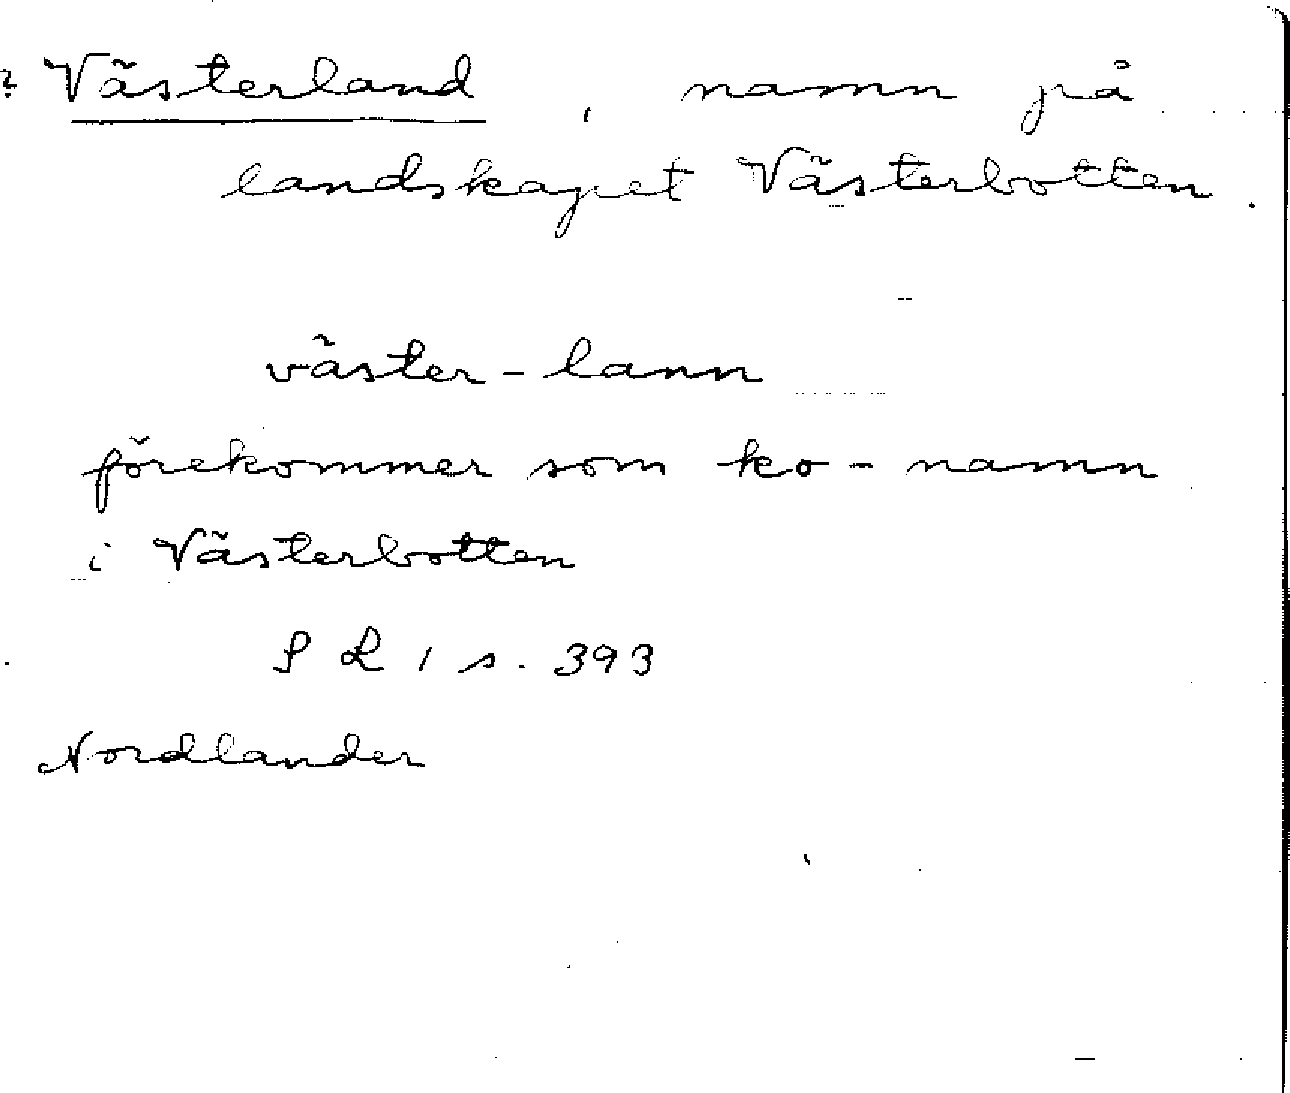 ? Västerland, namn på
landskapet Västerbotten.
väster-lann
förekommer som ko-namn
i Västerbotten
S L 1 s. 393
Nordlander